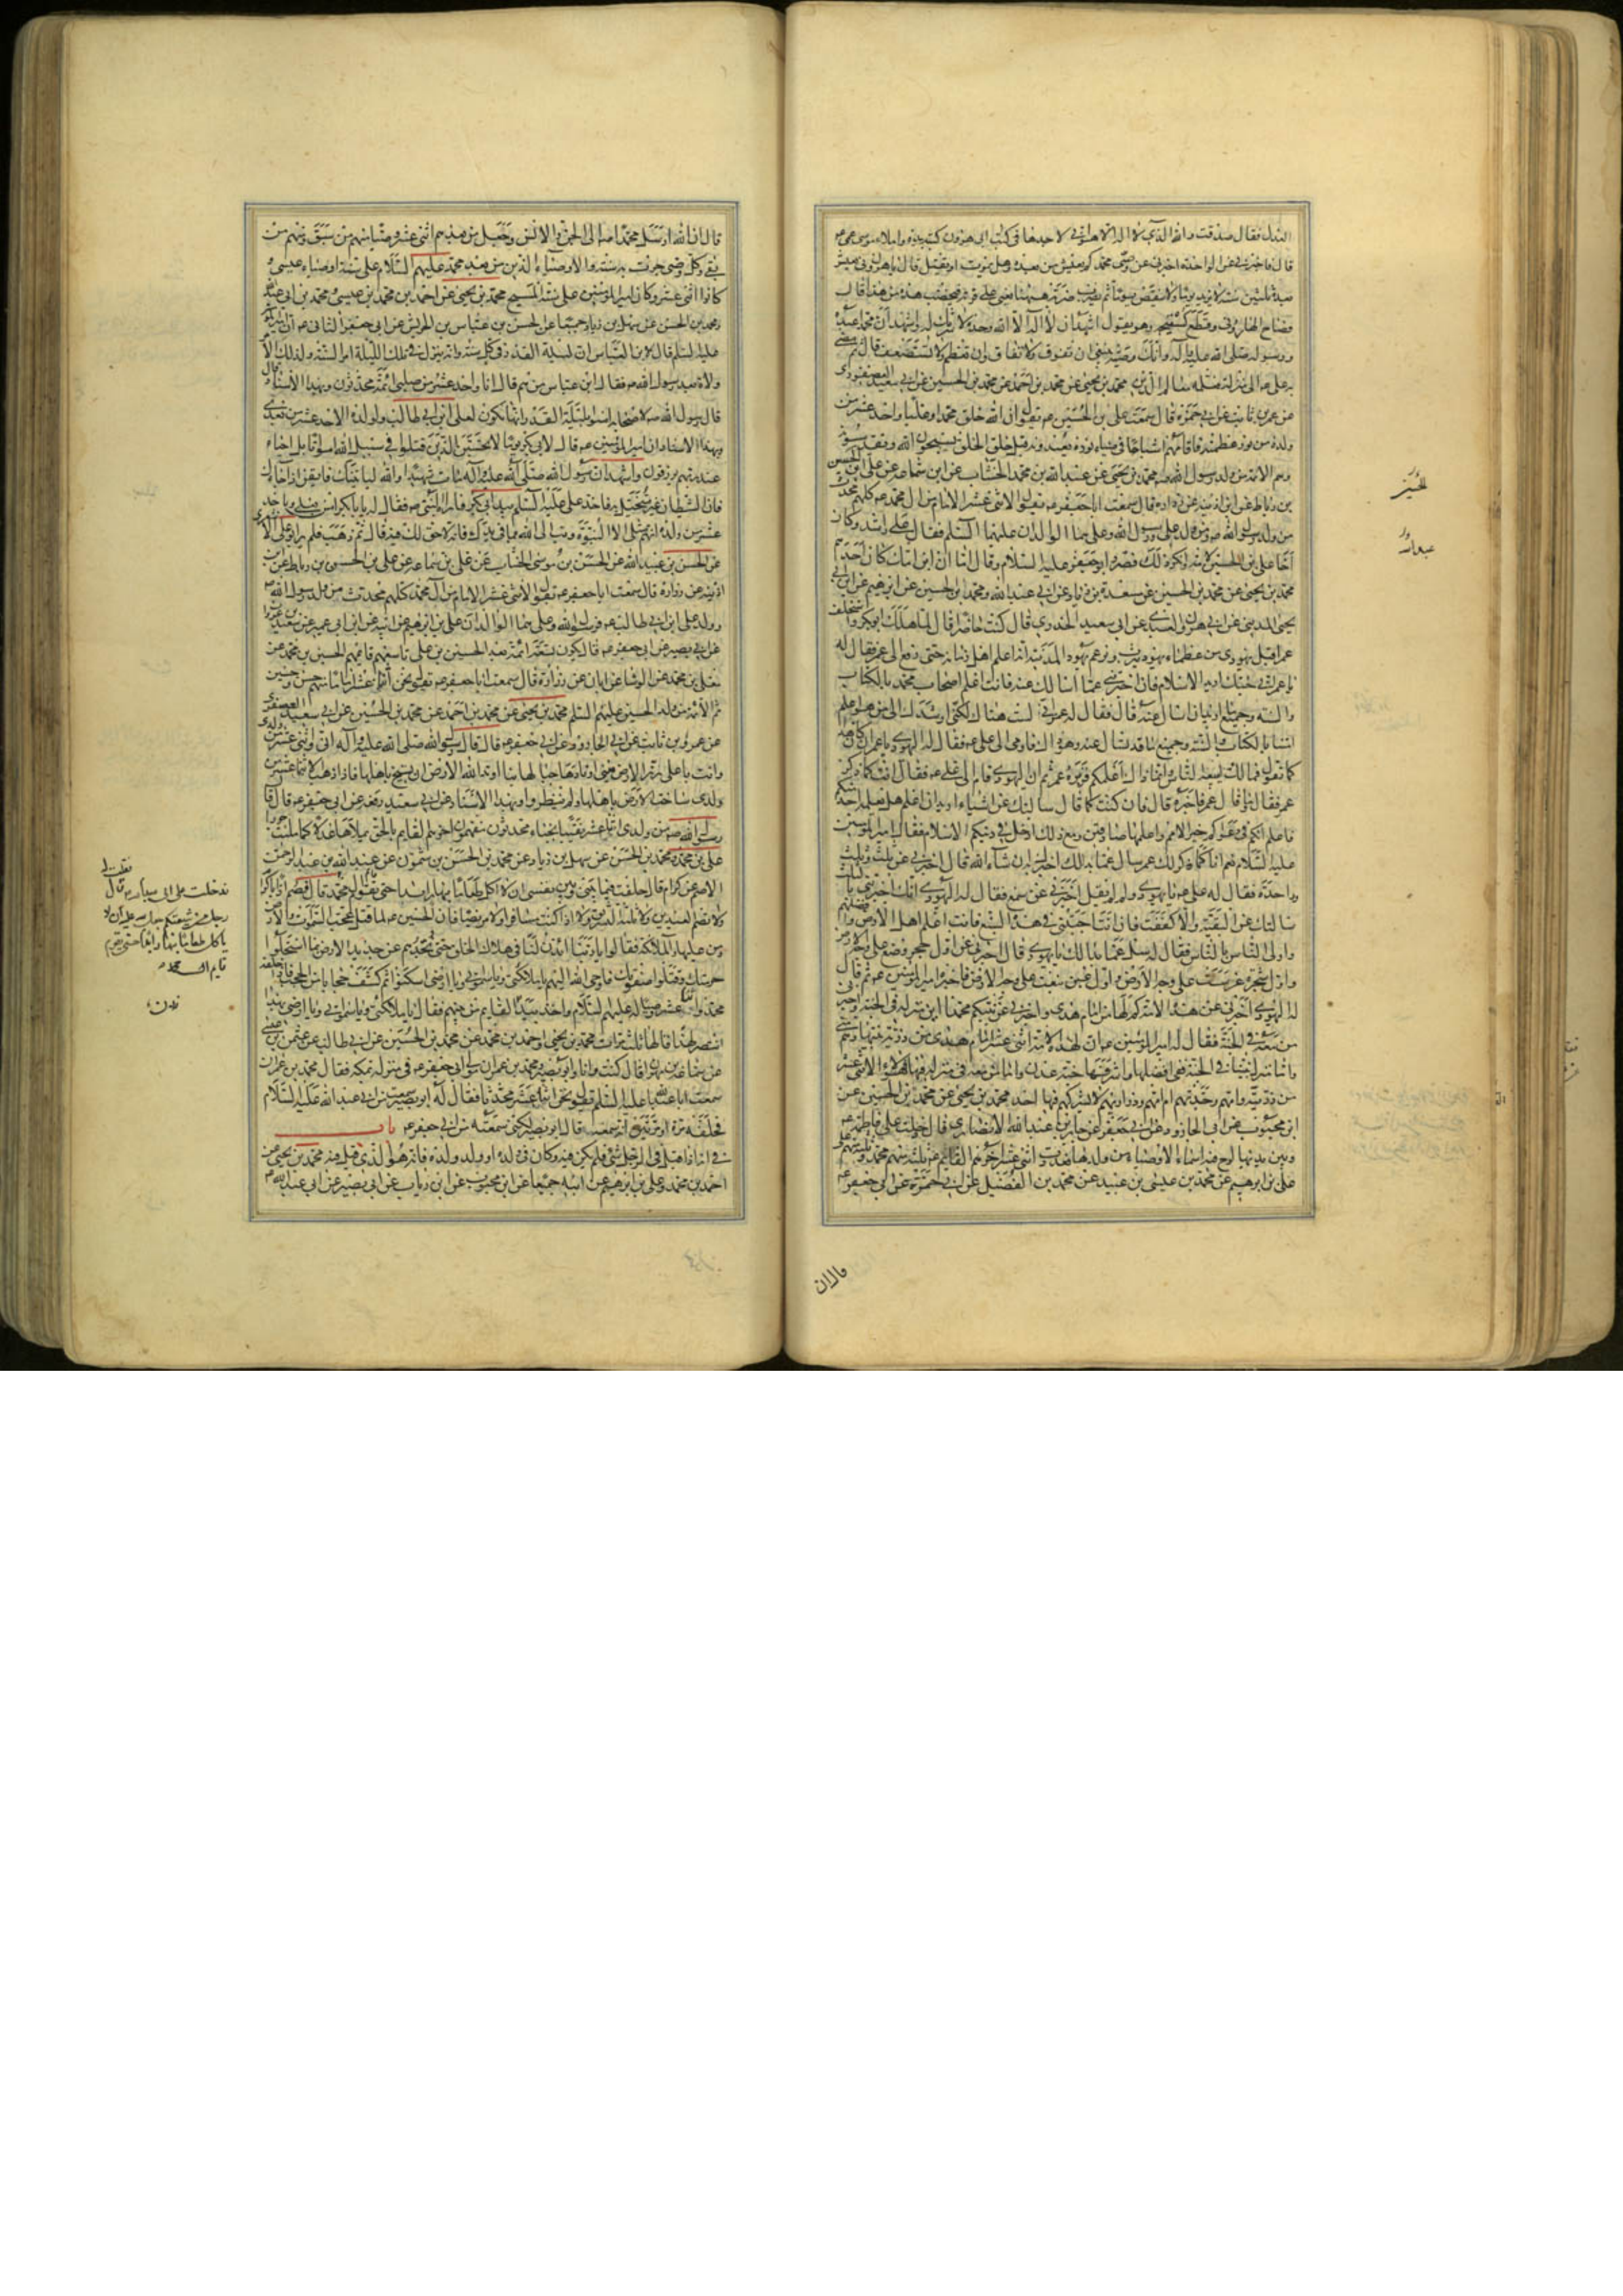 البذل فقال صدقت والله الذي لا اله الا هو اني لاجدها في كتاب ابي هرون كتبه بيده واملاء موسى عمي عم
قال فاخبرني عن الواحدة اخبرني عن وصي محمد كم يعيش من بعده وهل يموت او يقتل قال يا هاروني يعيش
بعده ثلثين سنة لا يزيد يوما ولا ينقص يوما ثم يضرب ضربة ههنا يعني على قرنه فتخضب هذه من هذا قال
فصاح الهاروني وقطع كستيجه وهو يقول اشهد ان لا اله الا الله وحده لا شريك له واشهد ان محمدا عبده
ورسوله صلى الله عليه وآله وانك وصيه ينبغي ان تفوق ولا تفاق وان تعظم ولا تستضعف قال ثم مضى
به علي عم الى منزله فعلمه معالم الدين محمد بن يحيى عن محمد بن احمد عن محمد بن الحسين عن ابي سعيد العصفوري
عن عمرو بن ثابت عن ابي حمزة قال سمعت علي بن الحسين عم يقول ان الله خلق محمدا وعليا واحد عشر من
ولده من نور عظمته فاقامهم اشباحا في ضياء نوره يعبدونه قبل خلق الخلق يسبحون الله ويقدسونه
وهم الائمة من ولد رسول الله ص محمد بن يحيى عن عبد الله بن محمد الخشاب عن ابن سماعة عن علي بن الحسين
بن رباط عن ابن اذينة عن زرارة قال سمعت ابا جعفر عم يقول الاثنى عشر الامام من آل محمد عم كلهم محدث
من ولد رسول الله ص ومن ولد علي ورسول الله وعلي هما الوالدان عليهما السلم فقال علي بن راشد وكان
اخا علي بن الحسين لامه وانكر ذلك فصرر ابو جعفر عليه السلام وقال اما ان ابن امك كان احدهم
محمد بن يحيى عن محمد بن الحسين عن مسعدة بن زياد عن ابي عبد الله ومحمد بن الحسين عن ابراهيم عن ابن ابي
يحيى المديني عن ابي هرون العبدي عن ابي سعيد الخدري قال كنت حاضرا قال لما هلك ابو بكر واستخلف
عمر اقبل يهودي من عظماء يهود يثرب وزعم يهود المدينة انه اعلم اهل زمانه حتى رفع الى عمر فقال له
يا عمر اني جئتك اريد الاسلام فان اخبرتني عما اسالك عنه فانت اعلم اصحاب محمد بالكتاب
والسنة وجميع ما اريد ان اسال عنه قال فقال له عمر اني لست هناك لكني ارشدك الى من هو اعلم
امتنا بالكتاب والسنة وجميع ما قد تسال عنه وهو ذاك فاومى الى علي عم فقال له اليهودي يا عمر ان كان هذا
كما تقول فما لك ولبيعة الناس وانما ذاك اعلمكم فزبره عمر ثم ان اليهودي قام الى علي عم فقال انت كما ذكر
عمر فقال وما قال عمر فاخبره قال فان كنت كما قال سالتك عن اشياء اريد ان اعلم هل يعلمه احد منكم
فاعلم انكم في دعواكم خير الامم واعلمها صادقين ومع ذلك ادخل في دينكم الاسلام فقال امير المومنين
عليه السلام نعم انا كما ذكر لك عمر سل عما بدا لك اخبرك به ان شاء الله قال اخبرني عن ثلث وثلث
وواحدة فقال له علي عم يا يهودي ولم لم تقل اخبرني عن سبع فقال له اليهودي انك ان اخبرتني بالثلث
سالتك عن البقية والا كففت فان انت اجبتني في هذه السبع فانت اعلم اهل الارض وافضلهم
واولى الناس بالناس فقال له سل عما بدا لك يا يهودي قال اخبرني عن اول حجر وضع على وجه الارض
واول شجرة غرست على وجه الارض واول عين نبعت على وجه الارض فاخبره امير المومنين عم ثم قال
له اليهودي اخبرني عن هذه الامة كم لها من امام هدى واخبرني عن نبيكم محمد اين منزله في الجنة واخبرني
من معه في الجنة فقال له امير المومنين عم ان لهذه الامة اثنى عشر امام هدى من ذرية نبيها وهم مني
واما منزل نبينا في الجنة ففي افضلها واشرفها جنة عدن واما من معه في منزله فيها فهؤلاء الاثنى عشر
من ذريته وامهم وجدتهم ام امهم وذراريهم لا يشركهم فيها احد محمد بن يحيى عن محمد بن الحسين عن
ابن محبوب عن ابي الجارود عن ابي جعفر عن جابر بن عبد الله الانصاري قال دخلت على فاطمة عم
وبين يديها لوح فيه اسماء الاوصياء من ولدها فعددت اثنى عشر اخرهم القائم عم ثلثة منهم محمد وثلثة منهم علي
علي بن ابرهيم عن محمد بن عيسى بن عبيد عن محمد بن الفضيل عن ابي حمزة عن ابي جعفر عم
للخبر
عبد الله
قال ان
قال ان الله ارسل محمدا ص الى الجن والانس وجعل من بعده اثنى عشر وصيا منهم من سبق ومنهم من
بقي وكل وصي جرت به سنة والاوصياء الذين من بعد محمد عليهم السلام على سنة اوصياء عيسى و
كانوا اثنى عشر وكان امير المومنين على سنة المسيح محمد بن يحيى عن احمد بن محمد بن عيسى ومحمد بن ابي عبد الله
ومحمد بن الحسن عن سهل بن زياد جميعا عن الحسن بن عباس بن الحريش عن ابي جعفر الثاني عم ان امير المومنين
عليه السلم قال لابن العباس ان ليلة القدر في كل سنة وانه ينزل في تلك الليلة امر السنة ولذلك الامر
ولاة بعد رسول الله ص فقال ابن عباس من هم قال انا واحد عشر من صلبي ائمة محدثون وبهذا الاسناد قال
قال رسول الله ص لاصحابه امنوا بليلة القدر انها تكون لعلي ابن ابي طالب ولولده الاحد عشر من بعدي
وبهذا الاسناد ان امير المومنين عم قال لابي بكر يوما لا تحسبن الذين قتلوا في سبيل الله امواتا بل احياء
عند ربهم يرزقون واشهد ان رسول الله صلى الله عليه وآله مات شهيدا والله لياتينك فايقن اذا جاءك
فان الشيطان غير متخيل به فاخذ علي عليه السلم بيد ابي بكر فاراه النبي ص فقال له يا با بكر امن بعلي وباحد
عشر من ولده انهم مثلي الا النبوة وتب الى الله مما في يدك فانه لا حق لك فيه قال ثم ذهب فلم ير ابو علي الاشعري
عن الحسن بن عبيد الله عن الحسن بن موسى الخشاب عن علي بن سماعة عن علي بن الحسين بن رباط عن ابن
اذينة عن زرارة قال سمعت ابا جعفر عم يقول الاثنى عشر الامام من آل محمد كلهم محدث من ولد رسول الله ص
وولد علي ابن ابي طالب عم فرسول الله وعلي هما الوالدان علي بن ابرهيم عن ابيه عن ابن ابي عمير عن سعيد بن غزوان
عن ابي بصير عن ابي جعفر عم قال يكون تسعة ائمة بعد الحسين بن علي تاسعهم قائمهم الحسين بن محمد عن
معلى بن محمد عن الوشا عن ابان عن زرارة قال سمعت ابا جعفر عم يقول نحن اثنا عشر اماما منهم حسن وحسين
ثم الائمة من ولد الحسين عليهم السلم محمد بن يحيى عن محمد بن احمد عن محمد بن الحسين عن ابي سعيد العصفوري
عن عمرو بن ثابت عن ابي الجارود عن ابي جعفر عم قال قال رسول الله صلى الله عليه وآله اني واثنى عشر من ولدي
وانت يا علي رز الارض يعني اوتادها جبالها بنا اوتد الله الارض ان تسيخ باهلها فاذا ذهب الاثنا عشر من
ولدي ساخت الارض باهلها ولم ينظروا وبهذا الاسناد عن ابي سعيد رفعه عن ابي جعفر عم قال قال
رسول الله ص من ولدي اثنا عشر نقيبا نجباء محدثون مفهمون اخرهم القايم بالحق يملاها عدلا كما ملئت جورا
علي بن محمد ومحمد بن الحسن عن سهل بن زياد عن محمد بن الحسن بن شمون عن عبد الله بن عبد الرحمن
الاصم عن كرام قال حلفت فيما بيني وبين نفسي ان لا اكل طعاما بنهار ابدا حتى يقوم قايم آل محمد قال فصم اذا يا كرام
ولا تصم العيدين ولا ثلثة التشريق ولا اذا كنت مسافرا ولا مريضا فان الحسين عم لما قتل عجت السموات والارض
ومن عليها والملائكة فقالوا يا ربنا ائذن لنا في هلاك الخلق حتى نجدهم عن جديد الارض بما استحلوا
حرمتك وقتلوا صفوتك فاوحى الله اليهم يا ملائكتي ويا سمواتي ويا ارضي اسكنوا ثم كشف حجابا من الحجب فاذا خلفه
محمد واثنا عشر وصيا له عليهم السلام واخذ بيد فلان القايم من بينهم فقال يا ملائكتي ويا سمواتي ويا ارضي بهذا
انتصر لهذا قالها ثلث مرات محمد بن يحيى واحمد بن محمد عن محمد بن الحسين عن ابي طالب عن عثمن بن عيسى
عن سماعة بن مهران قال كنت انا وابو بصير ومحمد بن عمران مولى ابي جعفر عم في منزله بمكة فقال محمد بن عمران
سمعت ابا عبد الله عليه السلم يقول نحن اثنا عشر محدثا فقال له ابو بصير سمعت من ابي عبد الله عليه السلام
فحلفه مرة او مرتين انه سمعه قال ابو بصير لكني سمعته من ابي جعفر عم باب
في انه اذا قيل في الرجل شيء فلم يكن فيه وكان في ولده او ولد ولده فانه هو الذي قيل فيه محمد بن يحيى عن
احمد بن محمد وعلي بن ابرهيم عن ابيه جميعا عن ابن محبوب عن ابن رئاب عن ابي بصير عن ابي عبد الله عم
فدخلت على ابي عبد الله عم قال فقلت له
رجل من شيعتكم جعل لله عليه ان لا
ياكل طعاما بنهار ابدا حتى يقوم
قايم آل محمد